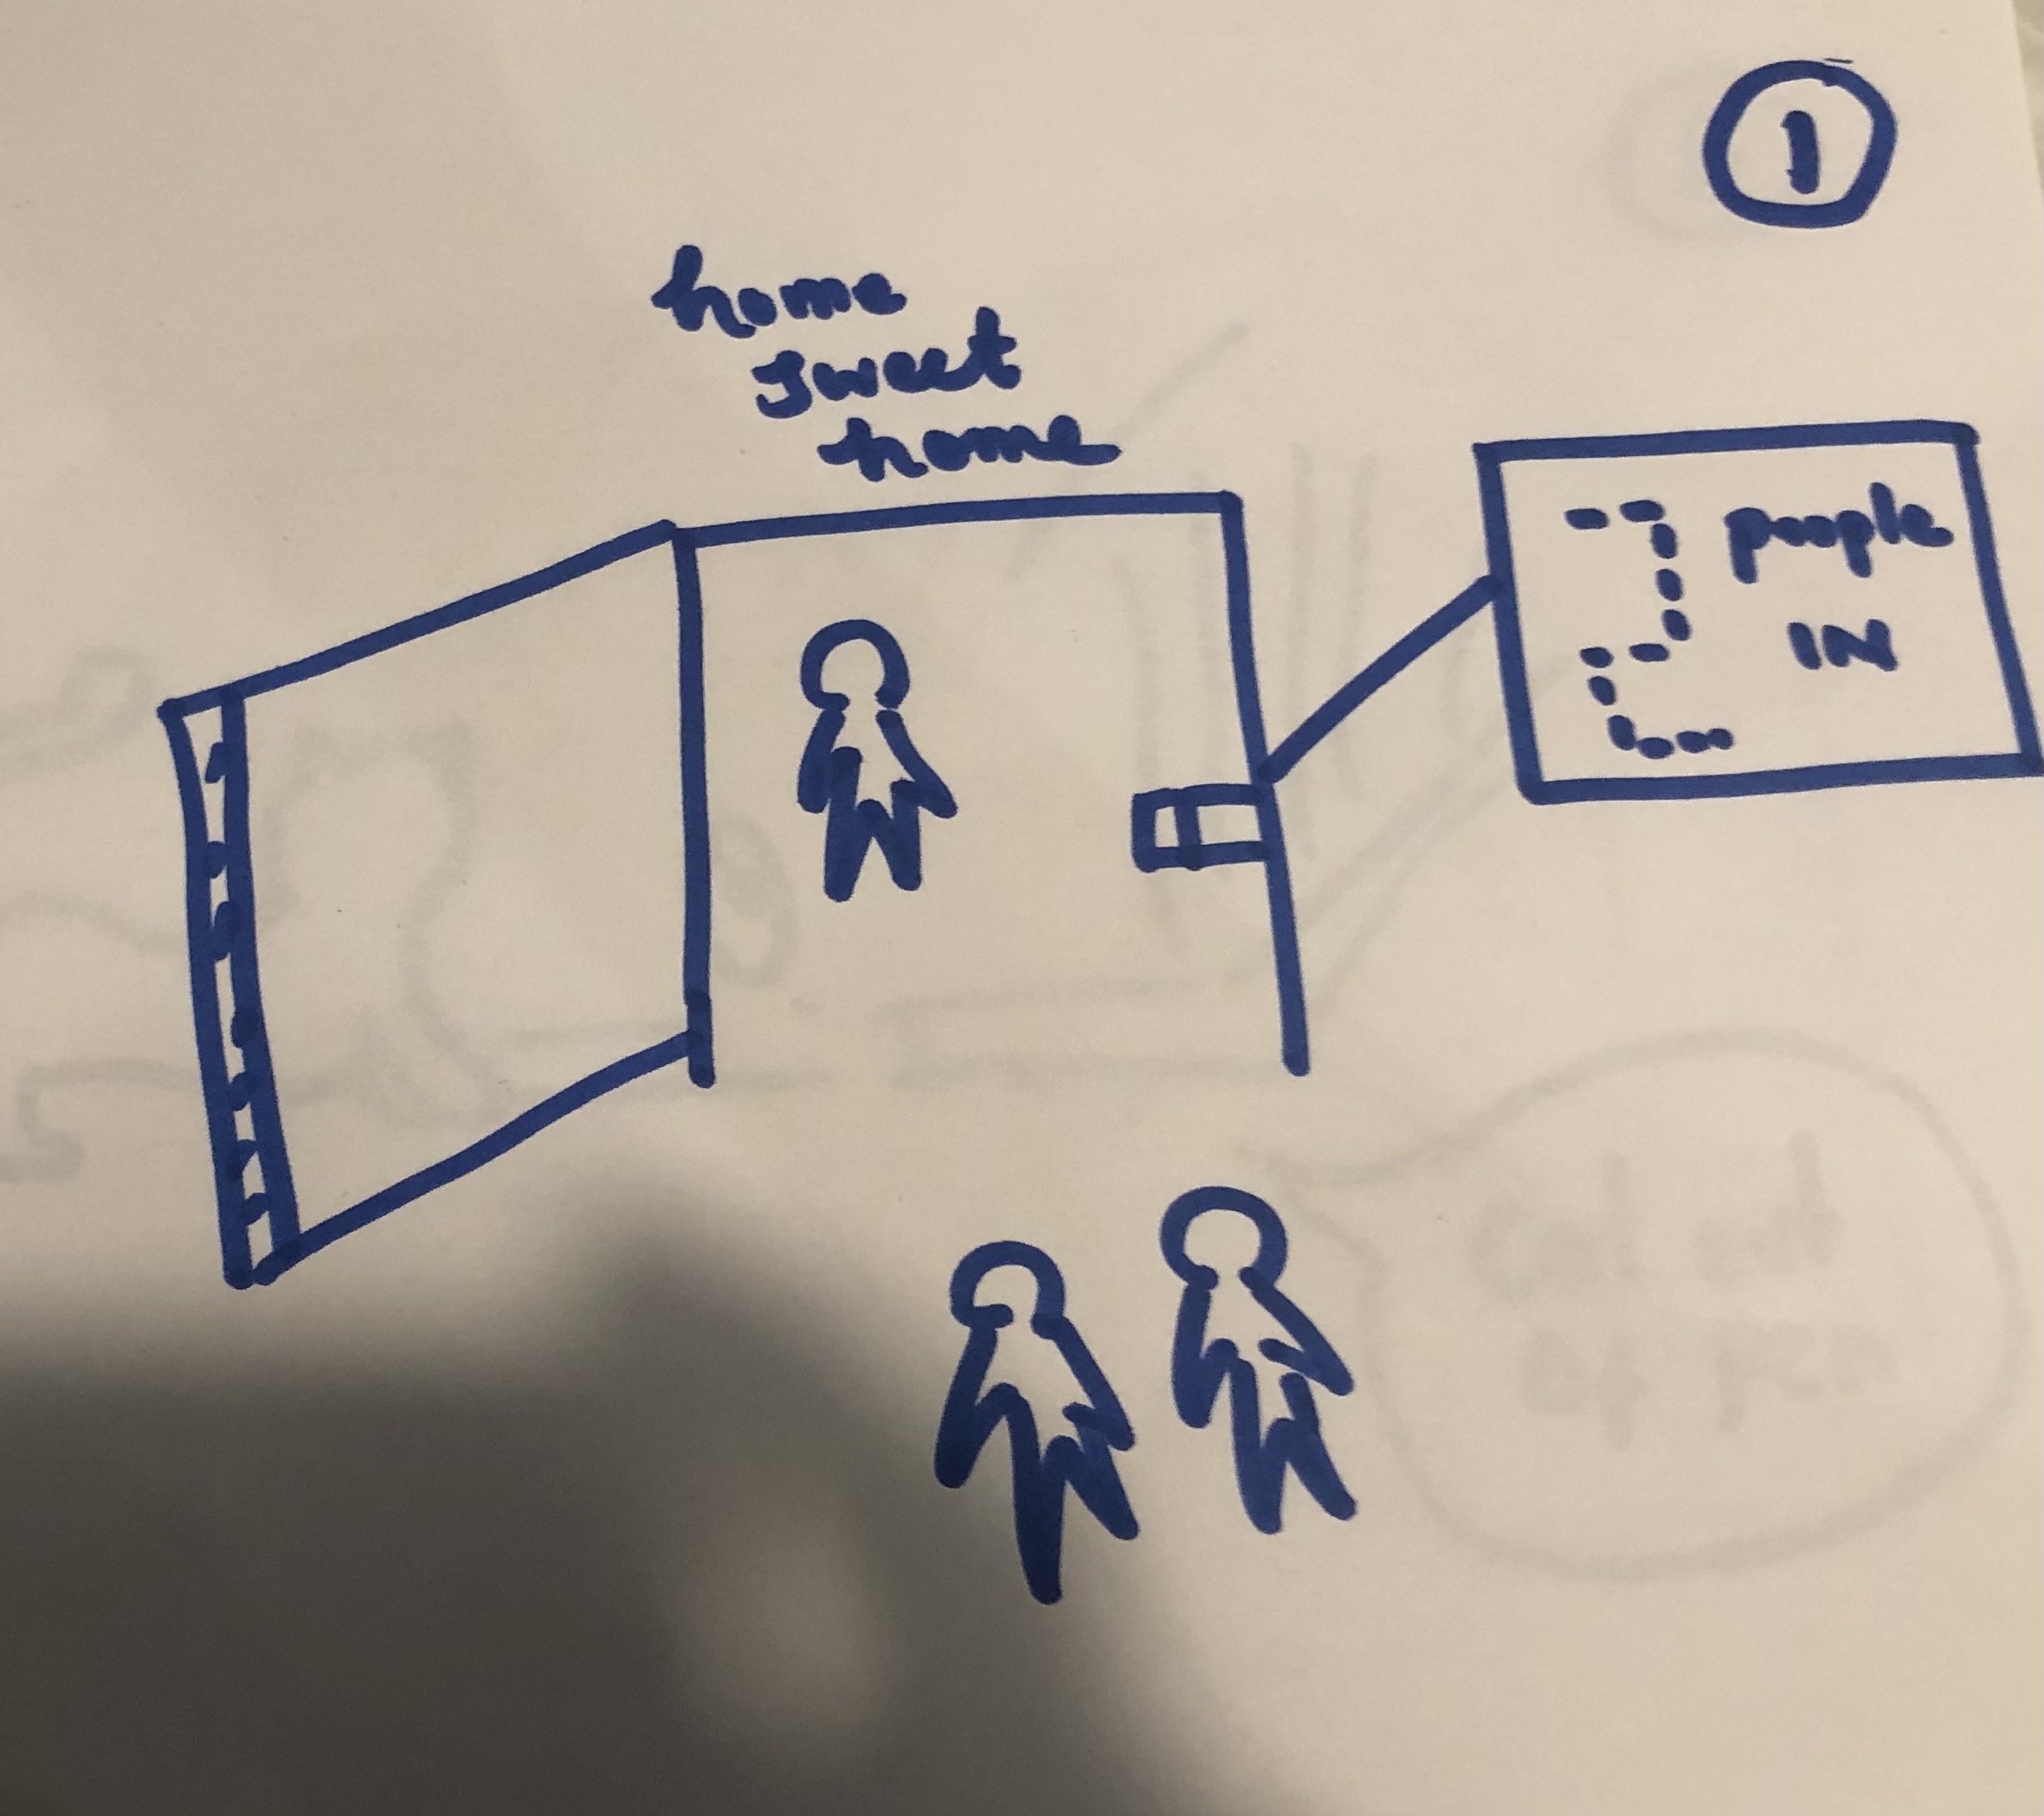 1
home
sweet
home
2 people
IN